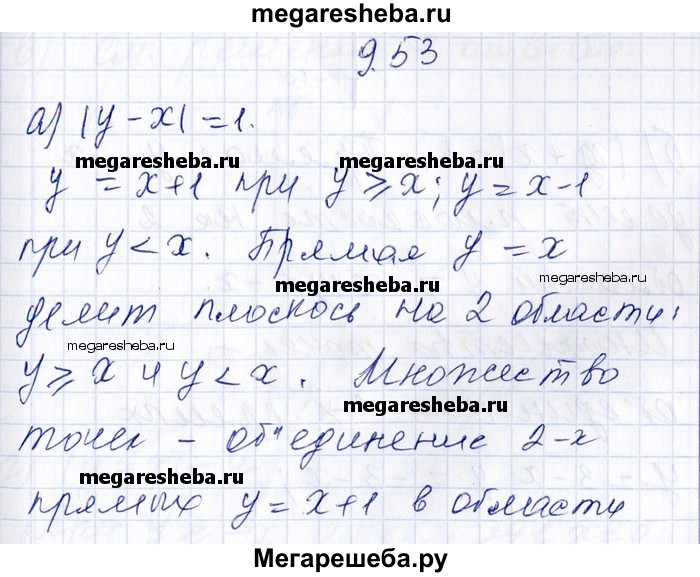 megaresheba.ru
953
а) |y - x| = 1.
megaresheba.ru megaresheba.ru
y = x+1 при y ⩾ x; y = x-1
при y < x. Прямая y = x
megaresheba.ru
делит плоскось на 2 области:
megaresheba.ru
y ⩾ x и y < x. Множество
megaresheba.ru
точек - об'единение 2-х
megaresheba.ru
прямых y = x+1 в области
Мегарешеба.ру